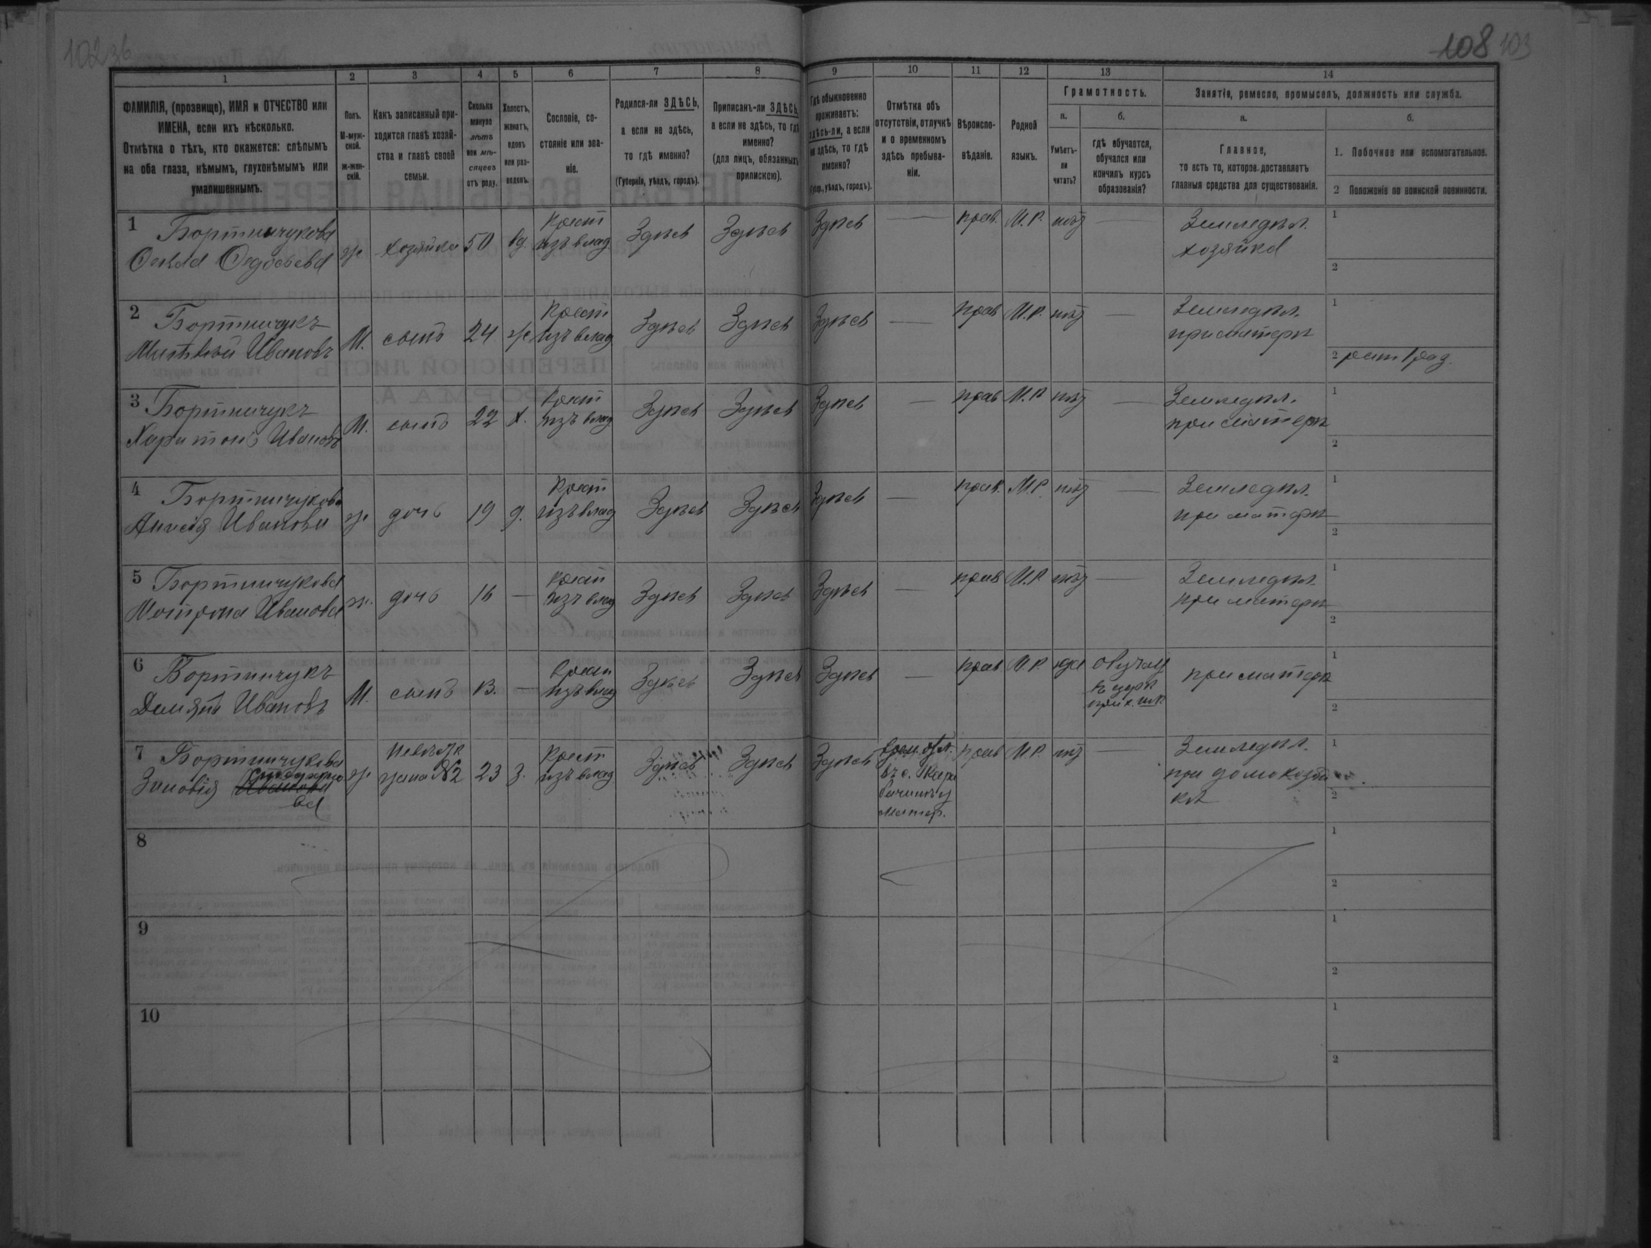 102 зв
108 103
1 2 3 4 5 6 7 8 9 10 11 12 13 14
ФАМИЛІЯ, (прозвище), ИМЯ и ОТЧЕСТВО или
ИМЕНА, если ихъ нѣсколько.
Отмѣтка о тѣхъ, кто окажется: слѣпымъ
на оба глаза, нѣмымъ, глухонѣмымъ или
умалишеннымъ.
Полъ.
М-муж-
ской.
ж-жен-
скій.
Какъ записанный при-
ходится главѣ хозяй-
ства и главѣ своей
семьи.
Сколько
минуло
лѣтъ
или мѣ-
сяцевъ
отъ роду.
Холостъ,
женатъ,
вдовъ
или раз-
веденъ.
Сословіе, со-
стояніе или зва-
ніе.
Родился-ли ЗДѢСЬ,
а если не здѣсь,
то гдѣ именно?
(Губернія, уѣздъ, городъ).
Приписанъ-ли ЗДѢСЬ,
а если не здѣсь, то гдѣ
именно?
(для лицъ, обязанныхъ
припискою).
Гдѣ обыкновенно
проживаетъ:
здѣсь-ли, а если
не здѣсь, то гдѣ
именно?
(Губ., уѣздъ, городъ).
Отмѣтка объ
отсутствіи, отлучкѣ
и о временномъ
здѣсь пребыва-
ніи.
Вѣроиспо-
вѣданіе.
Родной
языкъ.
Грамотность.
а.
Умѣетъ-
ли
читать?
б.
гдѣ обучается,
обучался или
кончилъ курсъ
образованія?
Занятіе, ремесло, промыселъ, должность или служба.
а.
Главное,
то есть то, которое доставляетъ
главныя средства для существованія.
б.
1. Побочное или вспомогательное.
2 Положеніе по воинской повинности.
1 Бортничукова
Ѳедосьева
ж хозяйка 50 вд Крест
изъ влад Здѣсь Здѣсь Здѣсь — прав. М.Р. нѣт — Земледѣл.
хозяйка
1
2
2 Бортничукъ
Ивановъ
М. сынъ 24 ж Крест
изъ влад Здѣсь Здѣсь Здѣсь — прав М.Р. нѣт — Земледѣл.
при матери
1
2
3 Бортничукъ
Харитонъ Ивановъ
М. сынъ 22 х. Крест
изъ влад Здѣсь Здѣсь Здѣсь — прав М.Р. нѣт — Земледѣл.
при матери
1
2
4 Бортничукова
Иванова
ж. дочь 19 д. Крест
изъ влад Здѣсь Здѣсь Здѣсь — прав. М.Р. нѣт — Земледѣл.
при матери
1
2
5 Бортничукова
Мотрона Иванова
ж. дочь 16 — Крест
изъ влад Здѣсь Здѣсь Здѣсь — прав М.Р. нѣт — Земледѣл.
при матери
1
2
6 Бортничукъ
Демянъ Ивановъ
М. сынъ 13. — Крест
изъ влад Здѣсь Здѣсь Здѣсь — прав М.Р. при матери
1
2
7 Бортничукова
Зиновія
ж невѣстка
жена №2 23 з. Крест
изъ влад Здѣсь Здѣсь Здѣсь прав М.Р. нѣт — Земледѣл.
при домохозяй
кѣ
1
2
8 1
2
9 1
2
10 1
2